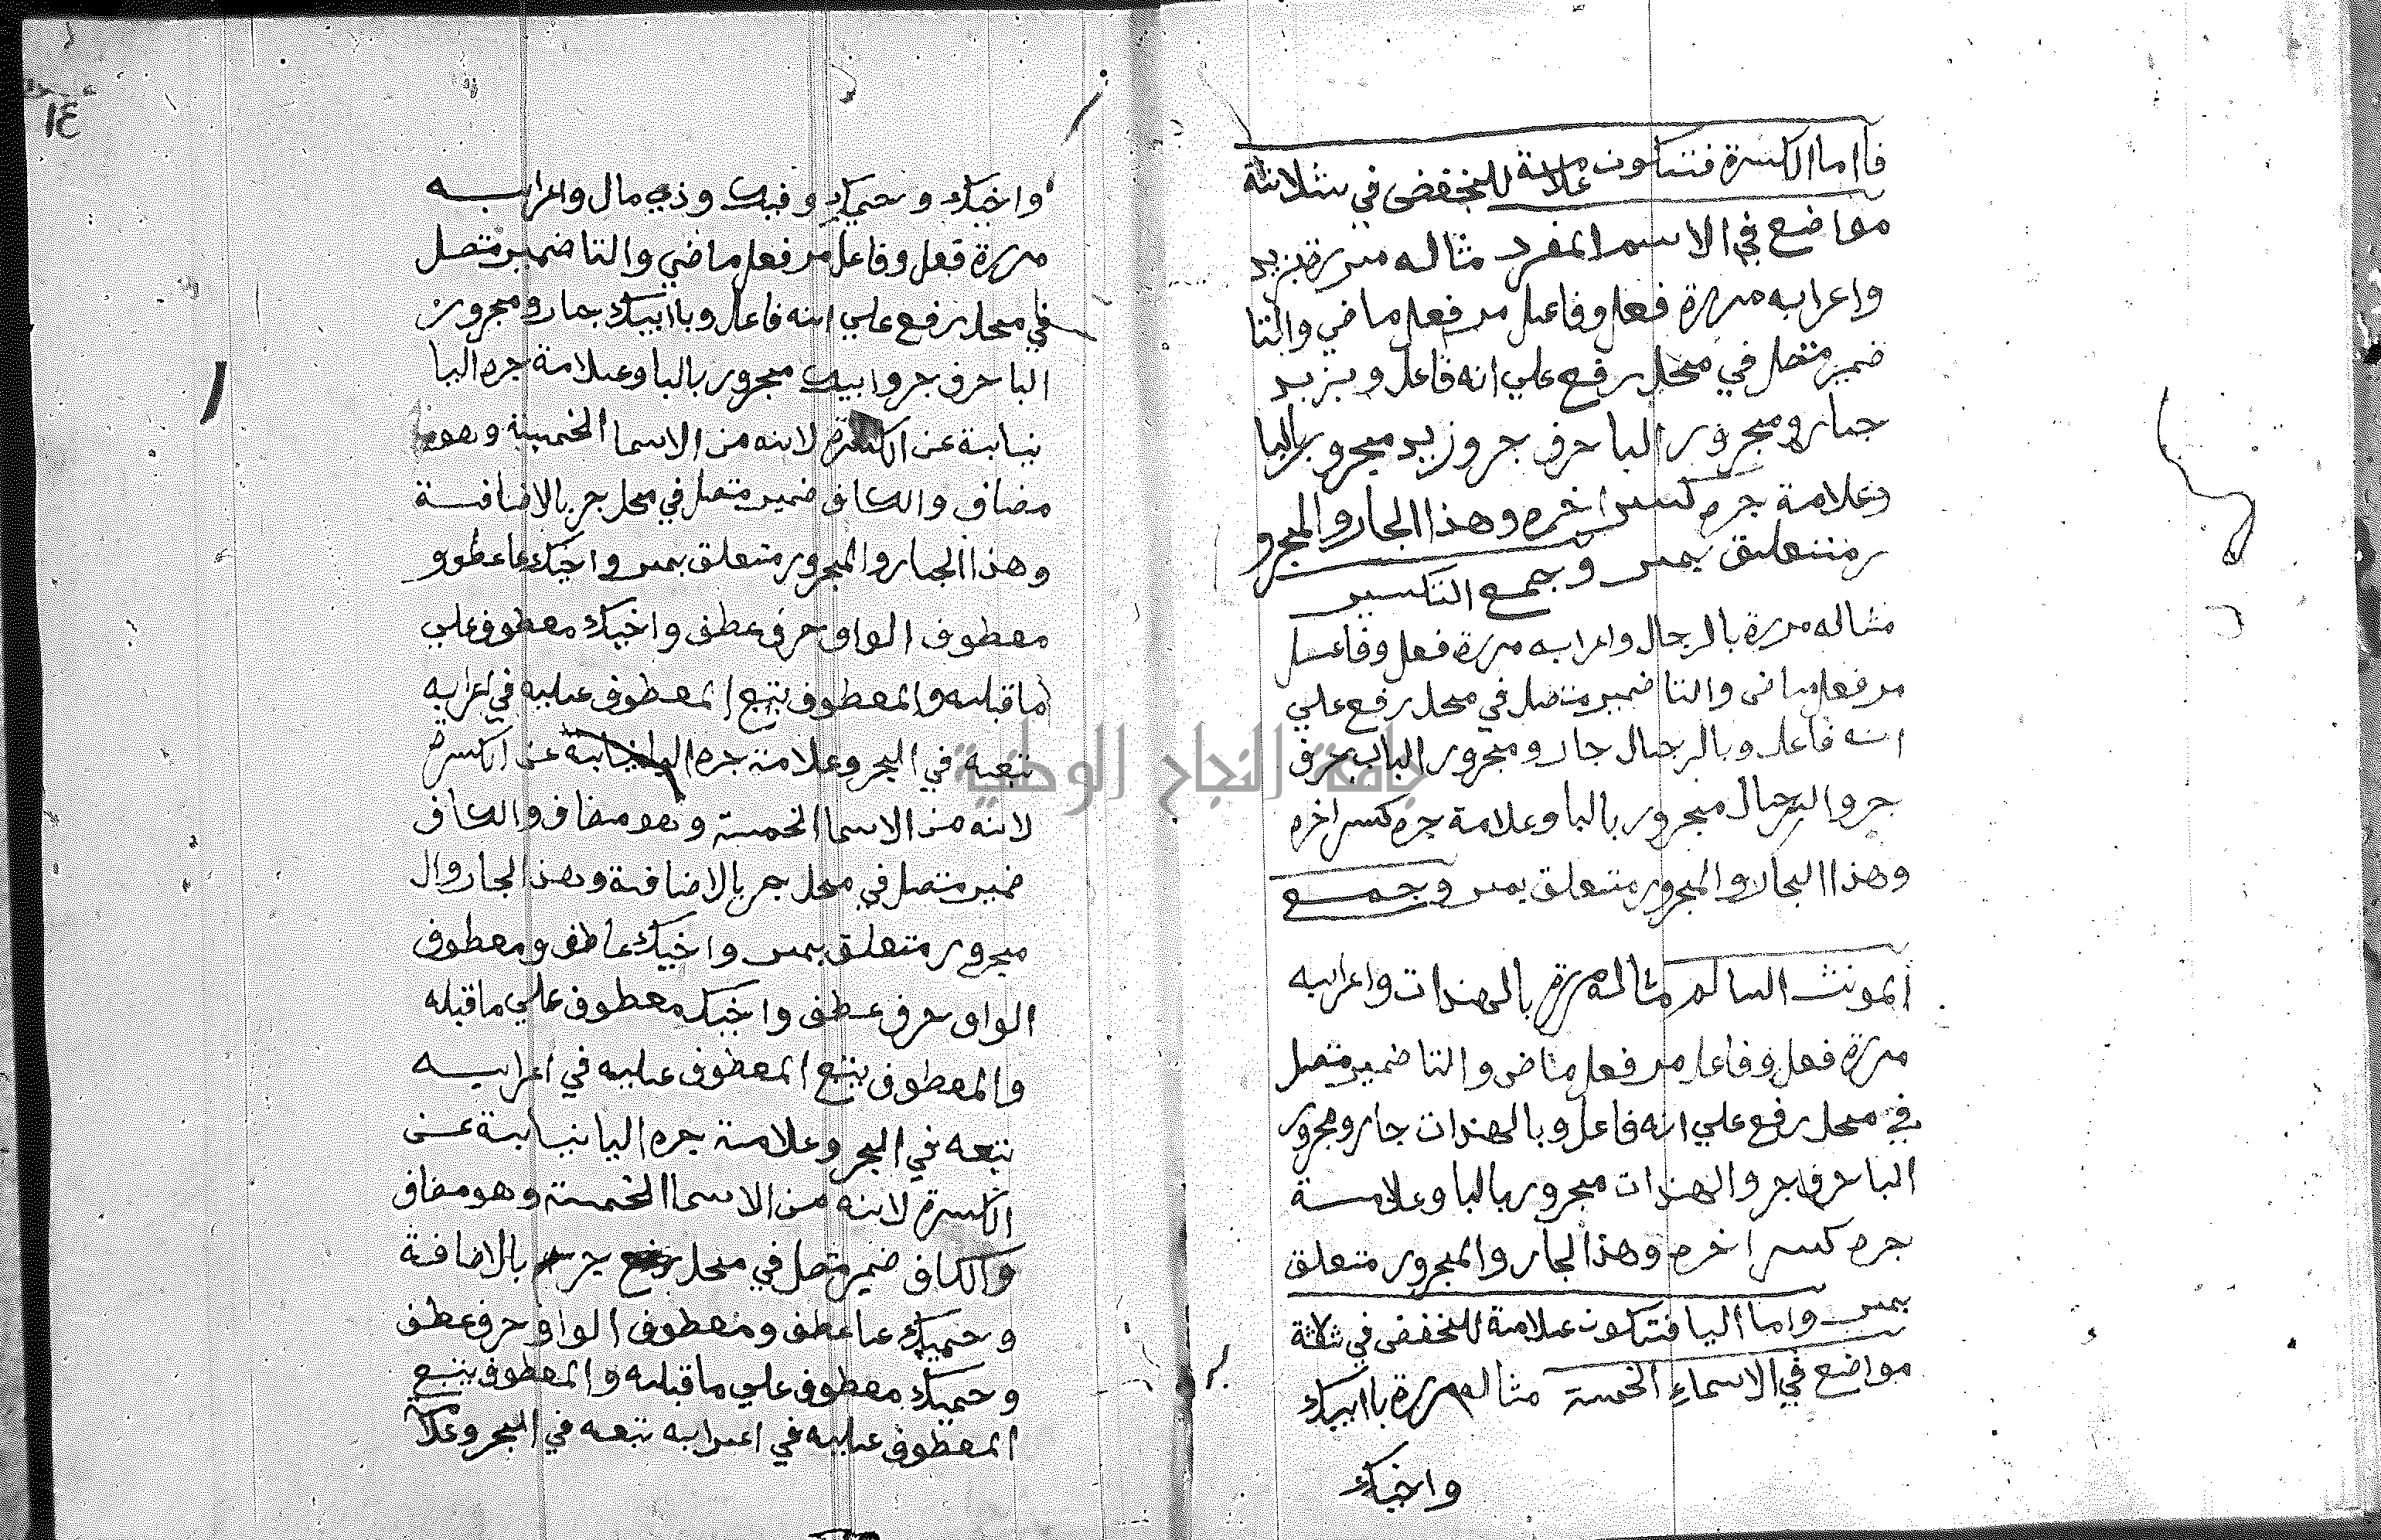 فأاما الكسرة فتكون علامة للخفض في ثلاثة
مواضع في الاسم المفرد مثاله مررة بزيد
واعرابه مررة فعل وفاعل مر فعل ماضي والتا
ضمير متصل في محل رفع علي انه فاعل وبزيد
جار ومجرور البا حرف جر وزيد مجرور بالبا
وعلامة جره كسر اخره وهذا الجار والمجرو
ر متعلق بمر وجمع التكسير
مثاله مررة بالرجال واعرابه مررة فعل وفاعل
مر فعل ماضى والتا ضمير متصل في محل رفع علي
انه فاعل وبالرجال جار ومجرور الباب حرف
جر والرجال مجرور بالبا وعلامة جره كسر اخره
وهذا الجار والمجرور متعلق بمر وجمع
المونث السالم مثاله مررة بالهندات واعرابه
مررة فعل وفاعل مر فعل ماضى والتا ضمير متصل
في محل رفع علي انه فاعل وبالهندات جار ومجرور
البا حرف جر والهندات مجرور بالبا وعلامة
جره كسر اخره وهذا الجار والمجرور متعلق
بمر واما اليا فتكون علامة للخفض في ثلاثة
مواضع في الاسماء الخمسة مثاله مررة باابيك
واخيك
١٤
واخيك وحميك وفيك وذي مال واعرابه
مررة فعل وفاعل مر فعل ماضي والتا ضمير متصل
في محل رفع علي انه فاعل وباابيك جار ومجرور
البا حرف جر وابيك مجرور بالبا وعلامة جره اليا
نيابة عن الكسرة لانه من الاسما الخمسة وهو
مضاف والكاف ضمير متصل في محل جر بالاضافة
وهذا الجار والمجرور متعلق بمر واخيك عاطوو
معطوف الواو حرف عطف واخيك معطوف علي
ما قبله والمعطوف يتبع المعطوف عليه في اعرابه
تبعه في الجر وعلامة جره اليا نيابة عن الكسرة
لانه من الاسما الخمسة وهو مضاف والكاف
ضمير متصل في محل جر بالاضافة وهذا الجار وال
مجرور متعلق بمر واخيك عاطف ومعطوف
الواو حرف عطف واخيك معطوف علي ما قبله
والمعطوف يتبع المعطوف عليه في اعرابه
تبعه في الجر وعلامة جره اليا نيابة عن
الكسرة لانه من الاسما الخمسة وهو مضاف
والكاف ضمير متصل في محل جر بالاضافة
وحميك عاطف ومعطوف الواو حرف عطف
وحميك معطوف علي ما قبله والمعطوف يتبع
المعطوف عليه في اعرابه تبعه في الجر وعلا
جامعة النجاح الوطنية